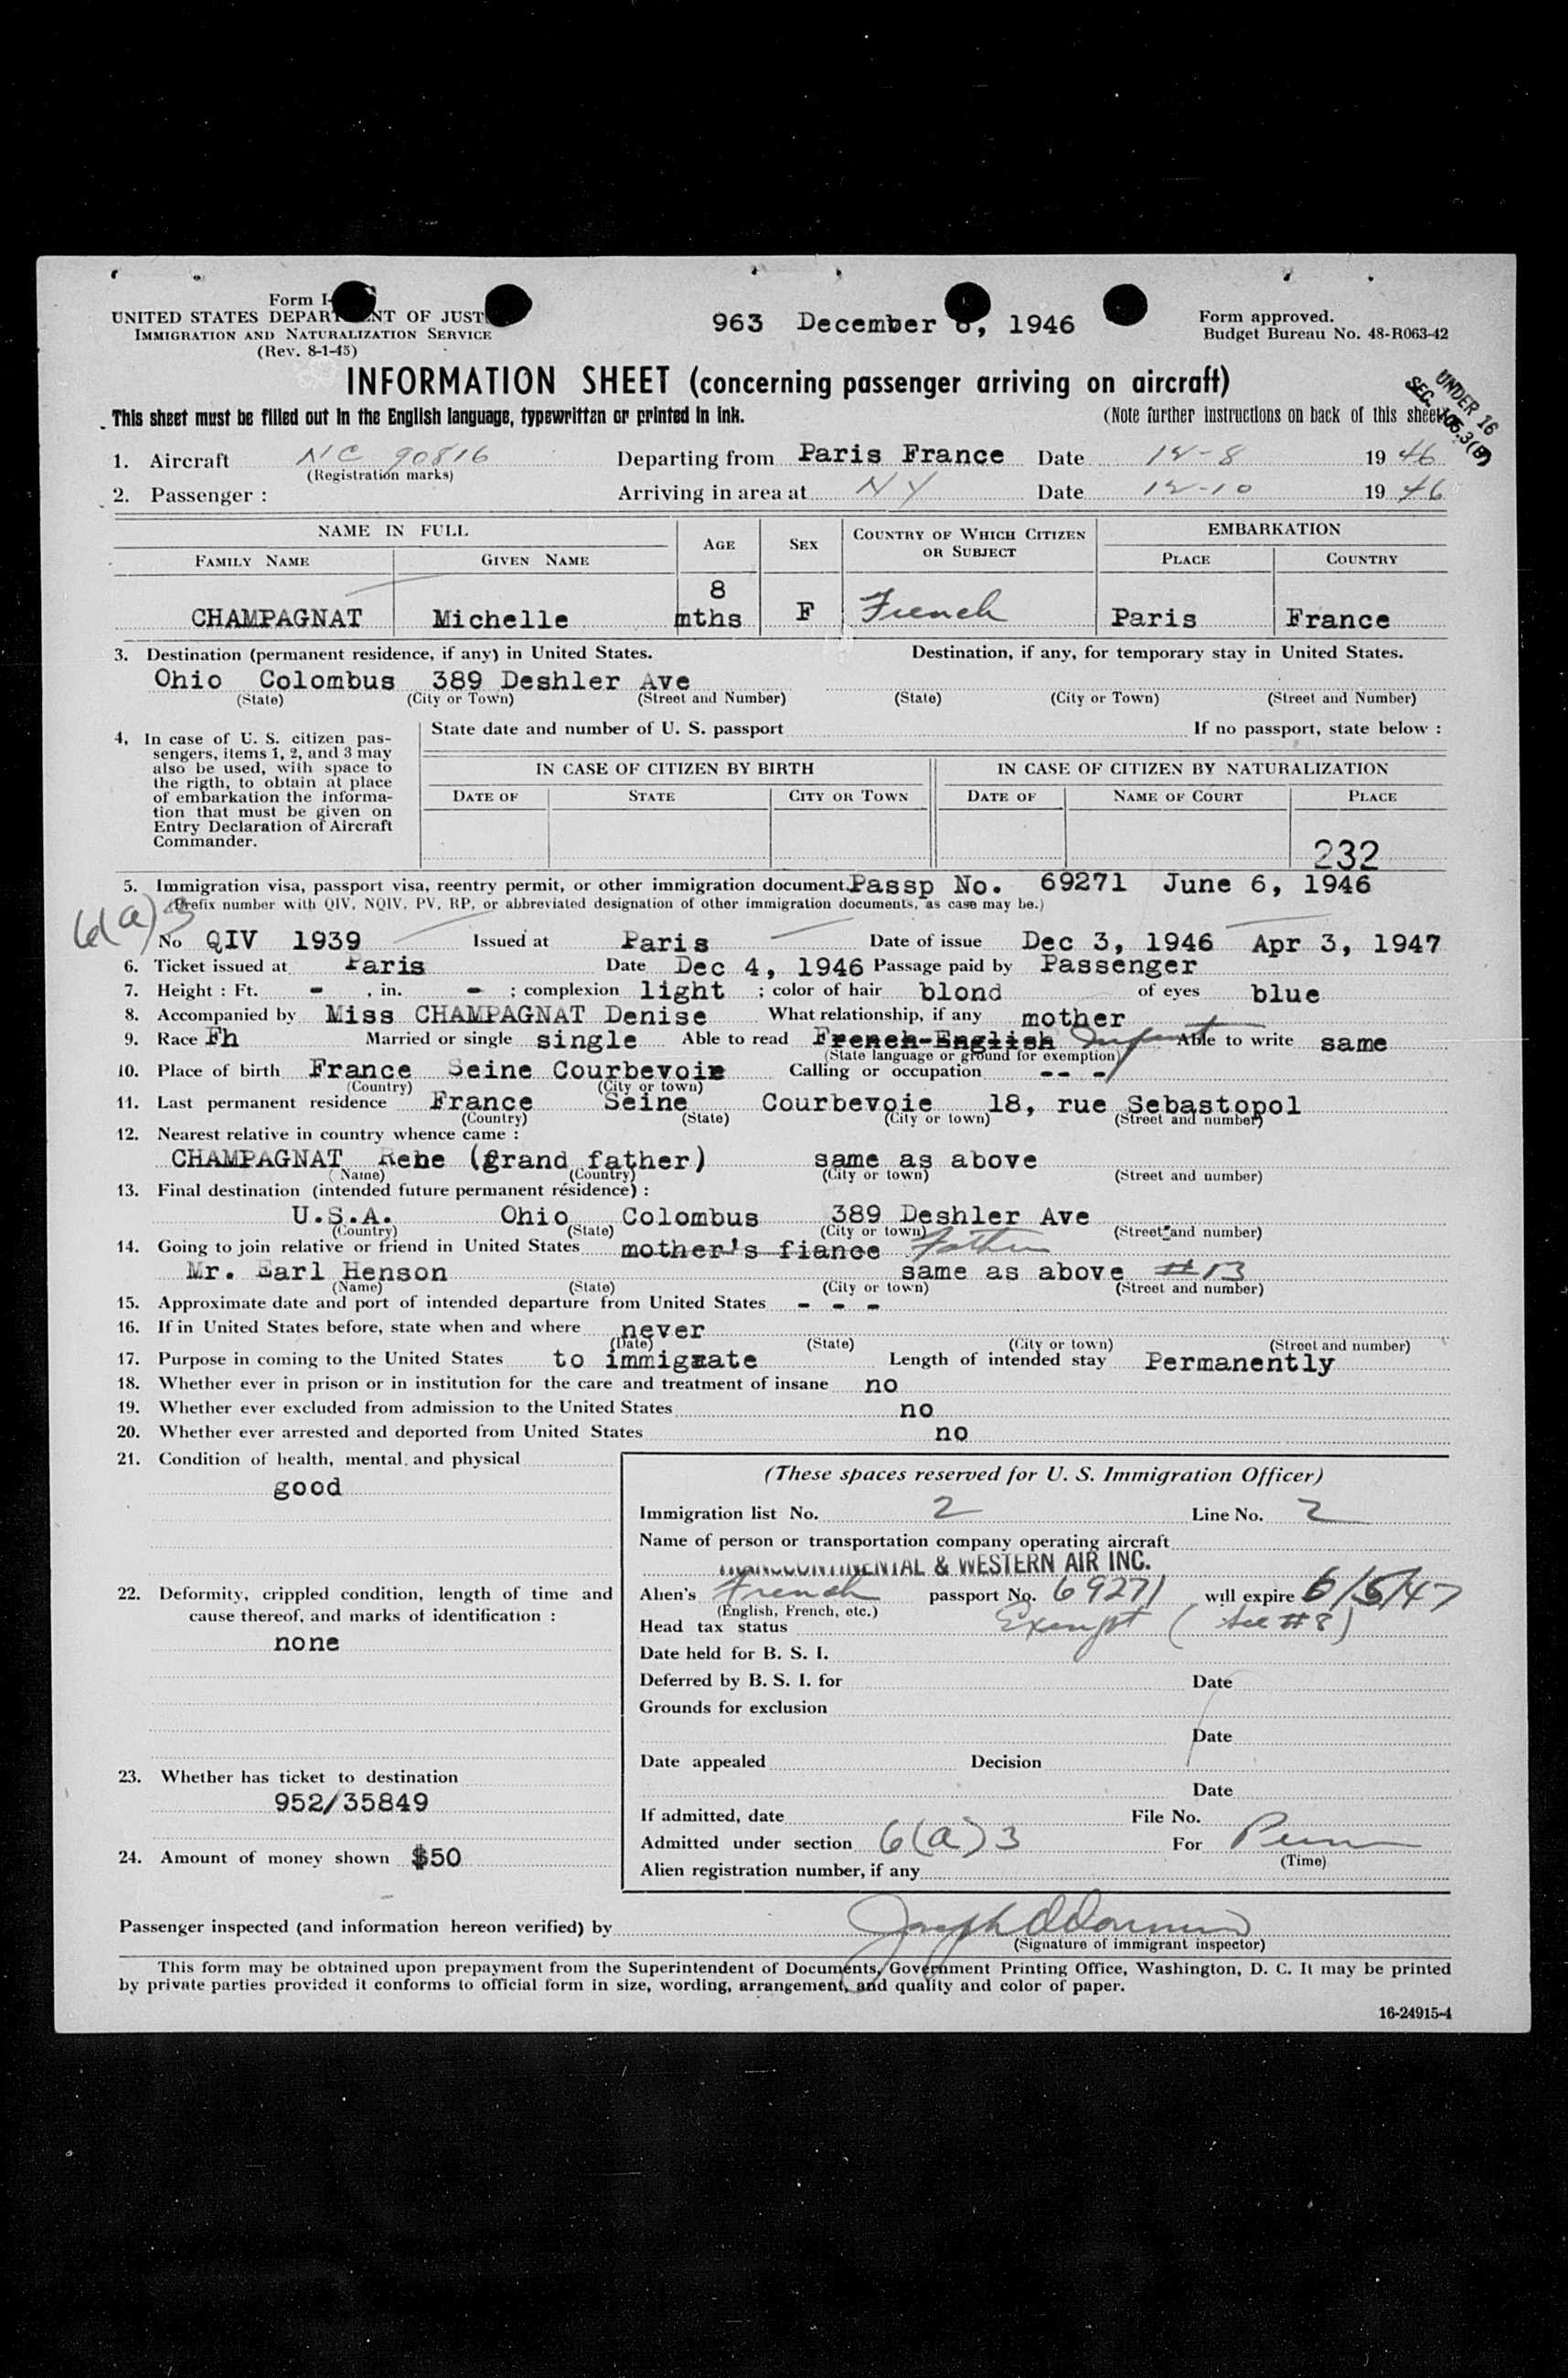 Form I-
UNITED STATES DEPAR NT OF JUST
IMMIGRATION AND NATURALIZATION SERVICE
(Rev. 8-1-45)
963 December , 1946
Form approved.
Budget Bureau No. 48-R063-42
INFORMATION SHEET (concerning passenger arriving on aircraft)
UNDER 16
SEC. 105.3(B)
This sheet must be filled out in the English language, typewritten or printed in ink.
(Note further instructions on back of this sheet
1. Aircraft NC 90816 Departing from Paris France Date 12-8 19 46
(Registration marks)
2. Passenger : Arriving in area at NY Date 12-10 19 46
NAME IN FULL AGE SEX COUNTRY OF WHICH CITIZEN OR SUBJECT EMBARKATION
FAMILY NAME GIVEN NAME PLACE COUNTRY
CHAMPAGNAT Michelle 8 mths F French Paris France
3. Destination (permanent residence, if any) in United States. Destination, if any, for temporary stay in United States.
Ohio Colombus 389 Deshler Ave
(State) (City or Town) (Street and Number) (State) (City or Town) (Street and Number)
4. In case of U. S. citizen passengers, items 1, 2, and 3 may also be used, with space to the rigth, to obtain at place of embarkation the information that must be given on Entry Declaration of Aircraft Commander.
State date and number of U. S. passport If no passport, state below :
IN CASE OF CITIZEN BY BIRTH IN CASE OF CITIZEN BY NATURALIZATION
DATE OF STATE CITY OR TOWN DATE OF NAME OF COURT PLACE
232
5. Immigration visa, passport visa, reentry permit, or other immigration document. Passp No. 69271 June 6, 1946
(Prefix number with QIV, NQIV, PV, RP, or abbreviated designation of other immigration documents, as case may be.)
6(a)3
No QIV 1939 Issued at Paris Date of issue Dec 3, 1946 Apr 3, 1947
6. Ticket issued at Paris Date Dec 4, 1946 Passage paid by Passenger
7. Height : Ft. - , in. - ; complexion light ; color of hair blond of eyes blue
8. Accompanied by Miss CHAMPAGNAT Denise What relationship, if any mother
9. Race Fh Married or single single Able to read French-English Infant Able to write same
(State language or ground for exemption)
10. Place of birth France Seine Courbevoie Calling or occupation -- -
(Country) (City or town)
11. Last permanent residence France Seine Courbevoie 18, rue Sebastopol
(Country) (State) (City or town) (Street and number)
12. Nearest relative in country whence came :
CHAMPAGNAT Rene (grand father) same as above
(Name) (Country) (City or town) (Street and number)
13. Final destination (intended future permanent résidence) :
U.S.A. Ohio Colombus 389 Deshler Ave
(Country) (State) (City or town) (Street and number)
14. Going to join relative or friend in United States mother's fiance Father
Mr. Earl Henson same as above #13
(Name) (State) (City or town) (Street and number)
15. Approximate date and port of intended departure from United States - - -
16. If in United States before, state when and where never
(Date) (State) (City or town) (Street and number)
17. Purpose in coming to the United States to immigrate Length of intended stay Permanently
18. Whether ever in prison or in institution for the care and treatment of insane no
19. Whether ever excluded from admission to the United States no
20. Whether ever arrested and deported from United States no
21. Condition of health, mental, and physical
good
22. Deformity, crippled condition, length of time and cause thereof, and marks of identification :
none
23. Whether has ticket to destination
952/35849
24. Amount of money shown $50
(These spaces reserved for U. S. Immigration Officer)
Immigration list No. 2 Line No. 2
Name of person or transportation company operating aircraft
TRANSCONTINENTAL & WESTERN AIR INC.
Alien's French passport No. 69271 will expire 6/5/47
(English, French, etc.)
Head tax status Exempt (See #8)
Date held for B. S. I.
Deferred by B. S. I. for Date
Grounds for exclusion
Date
Date appealed Decision
Date
If admitted, date File No.
Admitted under section 6(a)3 For Perm
(Time)
Alien registration number, if any
Passenger inspected (and information hereon verified) by Joseph
(Signature of immigrant inspector)
This form may be obtained upon prepayment from the Superintendent of Documents, Government Printing Office, Washington, D. C. It may be printed
by private parties provided it conforms to official form in size, wording, arrangement, and quality and color of paper.
16-24915-4